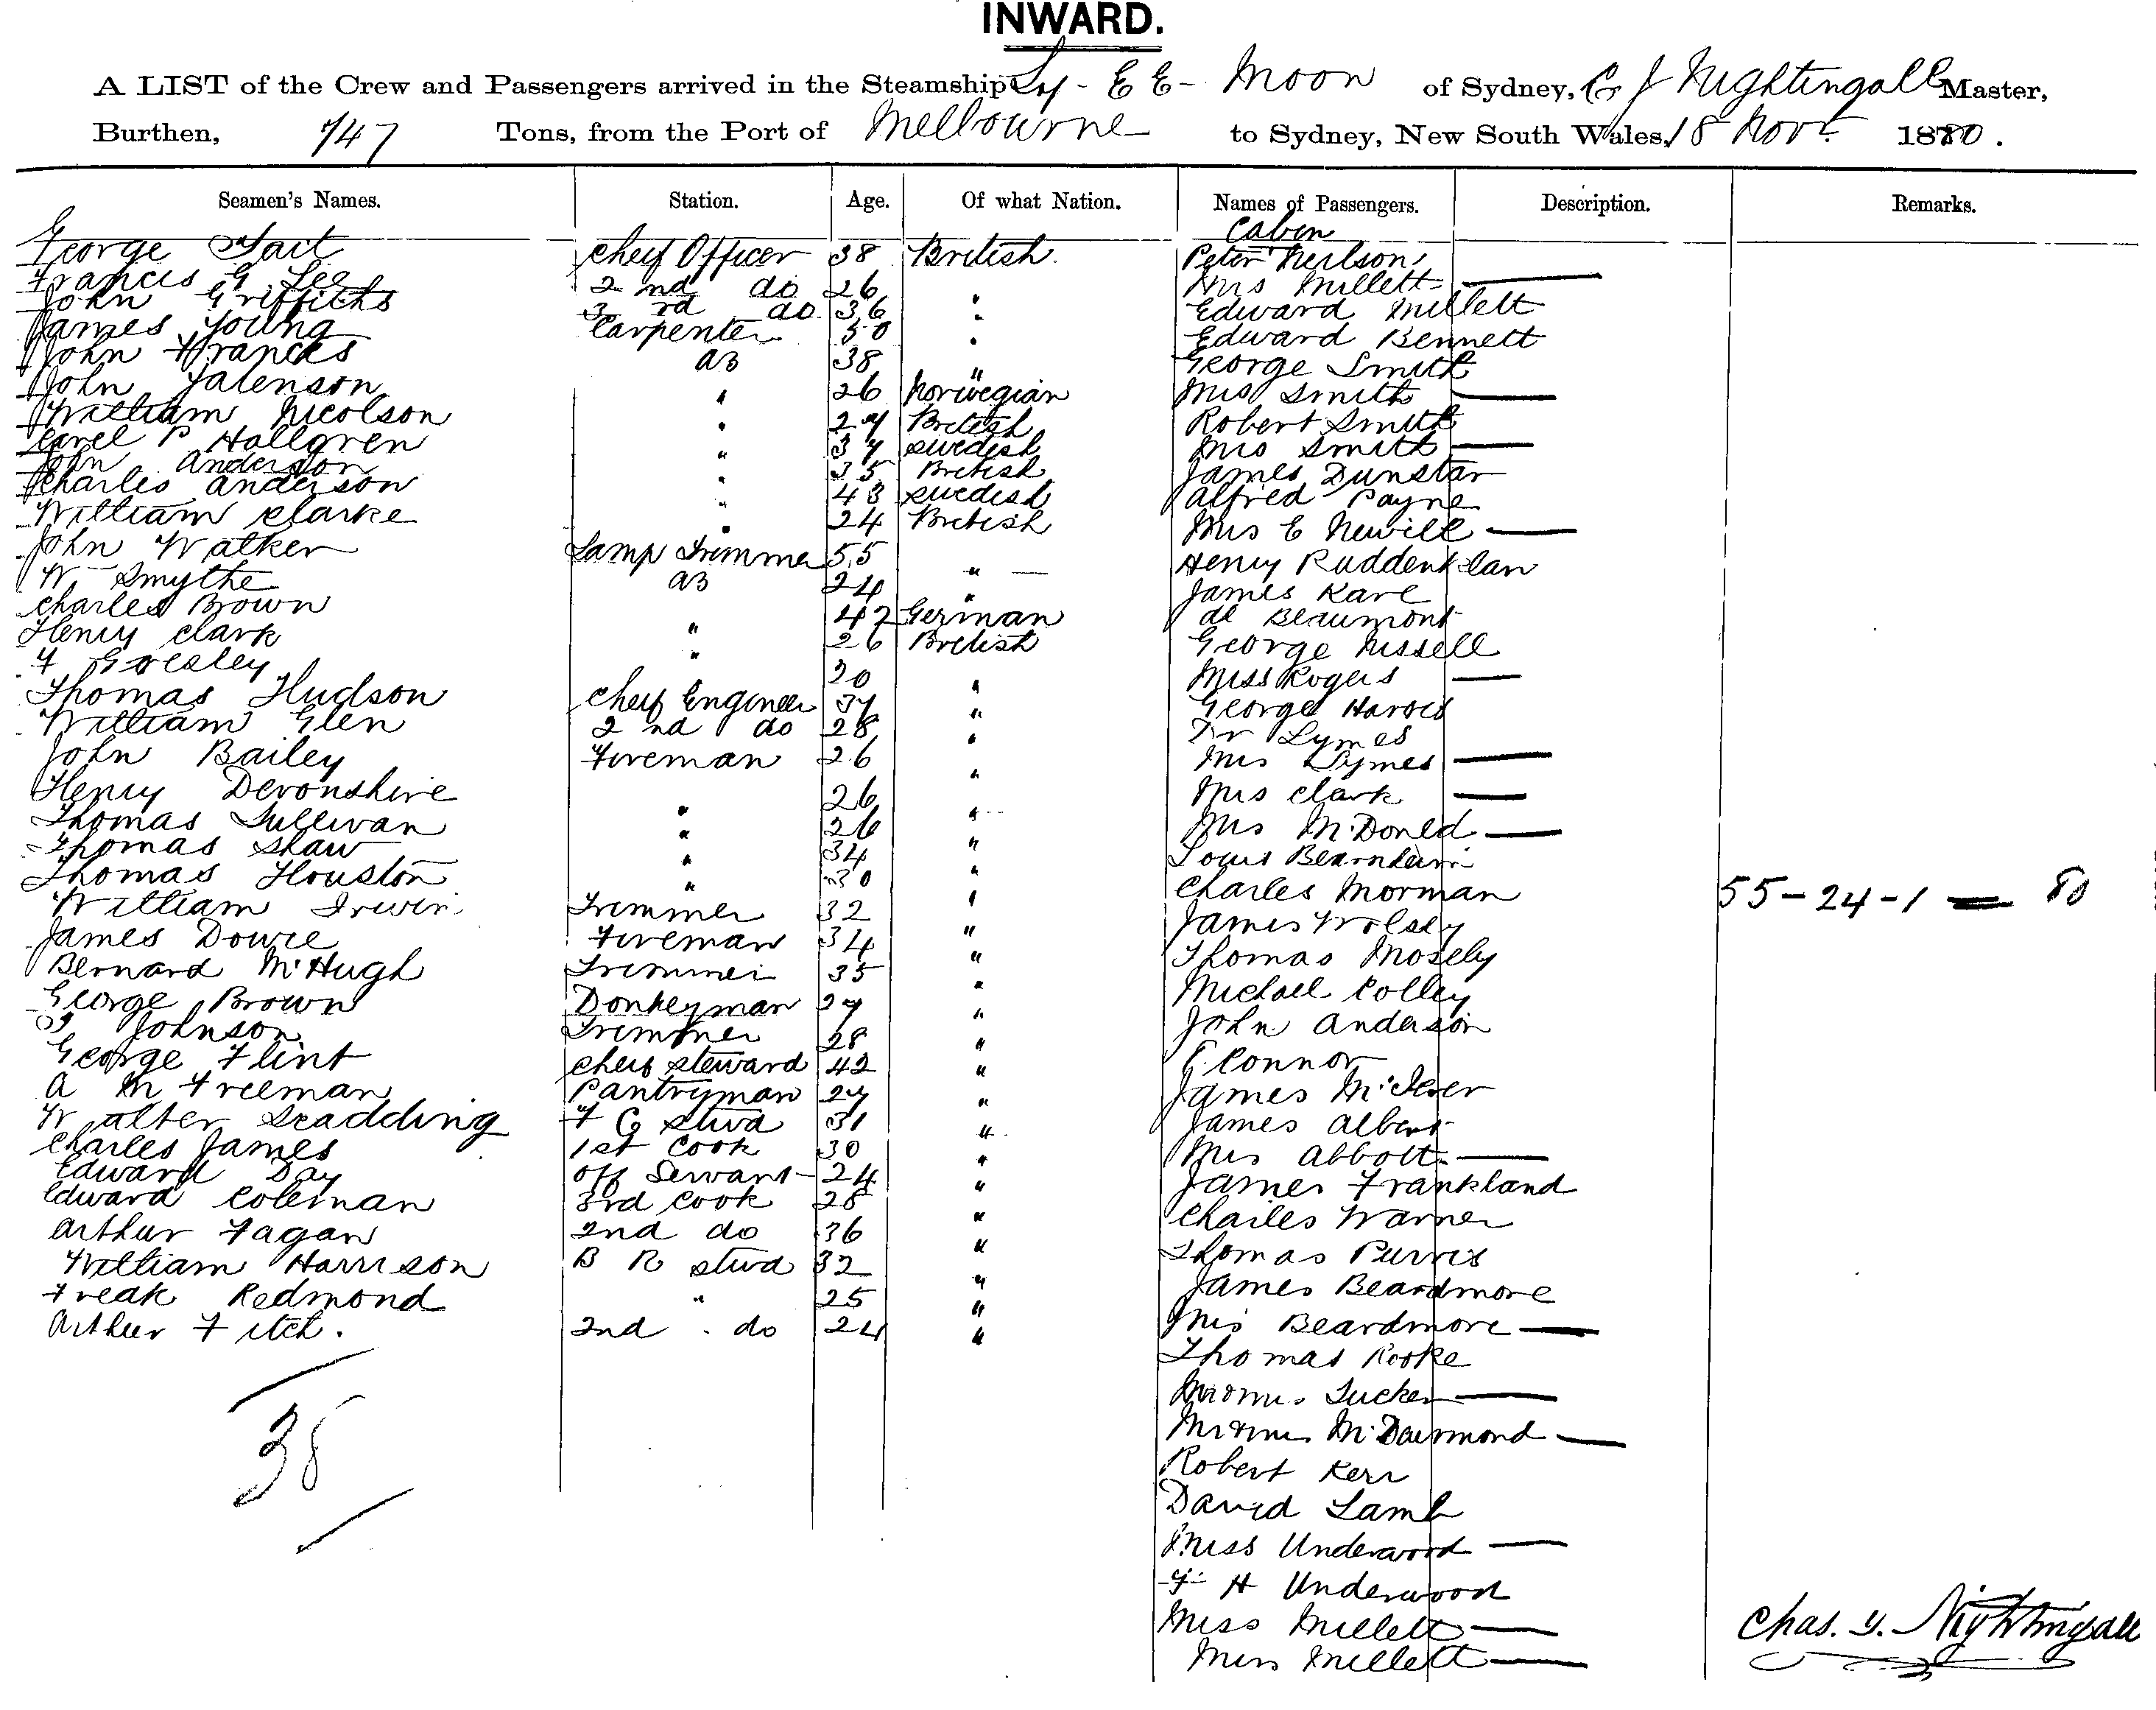 INWARD.
A LIST of the Crew and Passengers arrived in the Steamship Ly-EE-Moon of Sydney, C J Nightingall Master,
Burthen, 747 Tons, from the Port of Melbourne to Sydney, New South Wales, 18 Novr 1880.
Seamen's Names. Station. Age. Of what Nation. Names of Passengers. Description. Remarks.
Cabin
George Tait Cheif Officer 38 British Peter Neilson
Francis G Lee 2nd do 26 " Mrs Millett —
John Griffiths 3rd do 36 " Edward Millett
James Young Carpenter 50 " Edward Bennett
John Francks AB 38 " George Smith
John Jalenson " 26 Norwegian Mrs Smith —
William Nicolson " 27 British Robert Smith
Carel P Hallgren " 37 Swedish Mrs Smith —
John Anderson " 35 British James Dunstan
Charles Anderson " 43 Swedish Alfred Payne
William Clarke " 24 British Mrs E Newill —
John Walker Lamp Trimmer 55 " Henry Ruddenklau
W Smythe AB 24 " James Kare
Charles Brown " 42 German de Beaumont
Henry Clark " 26 British George Nissell
F Gresley 20 " Miss Rogers —
Thomas Hudson Cheif Engineer 37 " George Harris
William Glen 2nd do 28 " Dr Symes
John Bailey Fireman 26 " Mrs Symes —
Henry Devonshire " 26 " Mrs Clark —
Thomas Sullivan " 26 " Mrs McDoneld —
Thomas Shaw " 34 " Louis Bearnheim
Thomas Houston " 30 " Charles Morman
55-24-1 — 80
William Irwin Trimmer 32 " James Wolsey
James Dowie Fireman 34 " Thomas Mosely
Bernard McHugh Trimmer 35 " Michael Colley
George Brown Donkeyman 27 " John Anderson
Johnson Trimmer 28 " Connor
George Flint Cheif Steward 42 " James McIver
A M Freeman Pantryman 27 " James Albert
Walter Scadding F C Stwd 31 " Mrs Abbott —
Charles James 1st Cook 30 " James Frankland
Edward Day Off Servant 24 " Charles Warner
Edward Coleman 3rd Cook 28 " Thomas Purvis
Arthur Fagan 2nd do 36 " James Beardmore
William Harrison B R Stwd 32 " Mrs Beardmore —
Freak Redmond " 25 " Thomas Rooke
Arthur Fitch. 2nd do 24 " Mr & Mrs Tucker —
Mr & Mrs McDairmond —
38
Robert Kerr
David Lamb
Miss Underwood —
F H Underwood
Miss Millett —
Miss Millett —
Chas. J. Nightingall